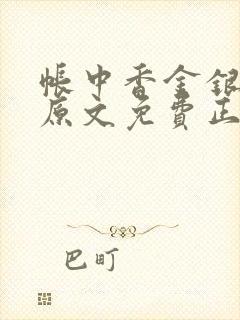 帳中香金銀
原文免費正
巴町